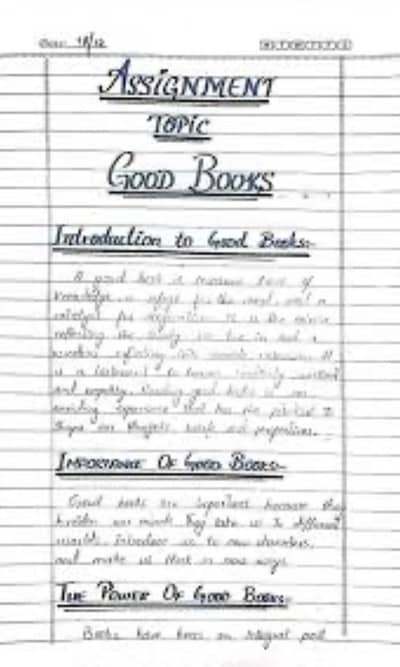 Date: 18/12
ASSIGNMENT
TOPIC
GOOD BOOKS
Introduction to Good Books:-
A good book is treasure trove of
knowledge, a refuge for the soul, and a
catalyst for
reflecting the we live in and a
window
is a to
and empathy. Reading good books is an
enriching experience that has the to
shape our thoughts, beliefs and perspectives.
IMPORTANCE OF GOOD BOOKS:-
Good books are important because they
broaden our minds. They take us to different
worlds, introduce us to new characters,
and make us think in new ways.
THE POWER OF GOOD BOOKS:-
Books have been an integral part